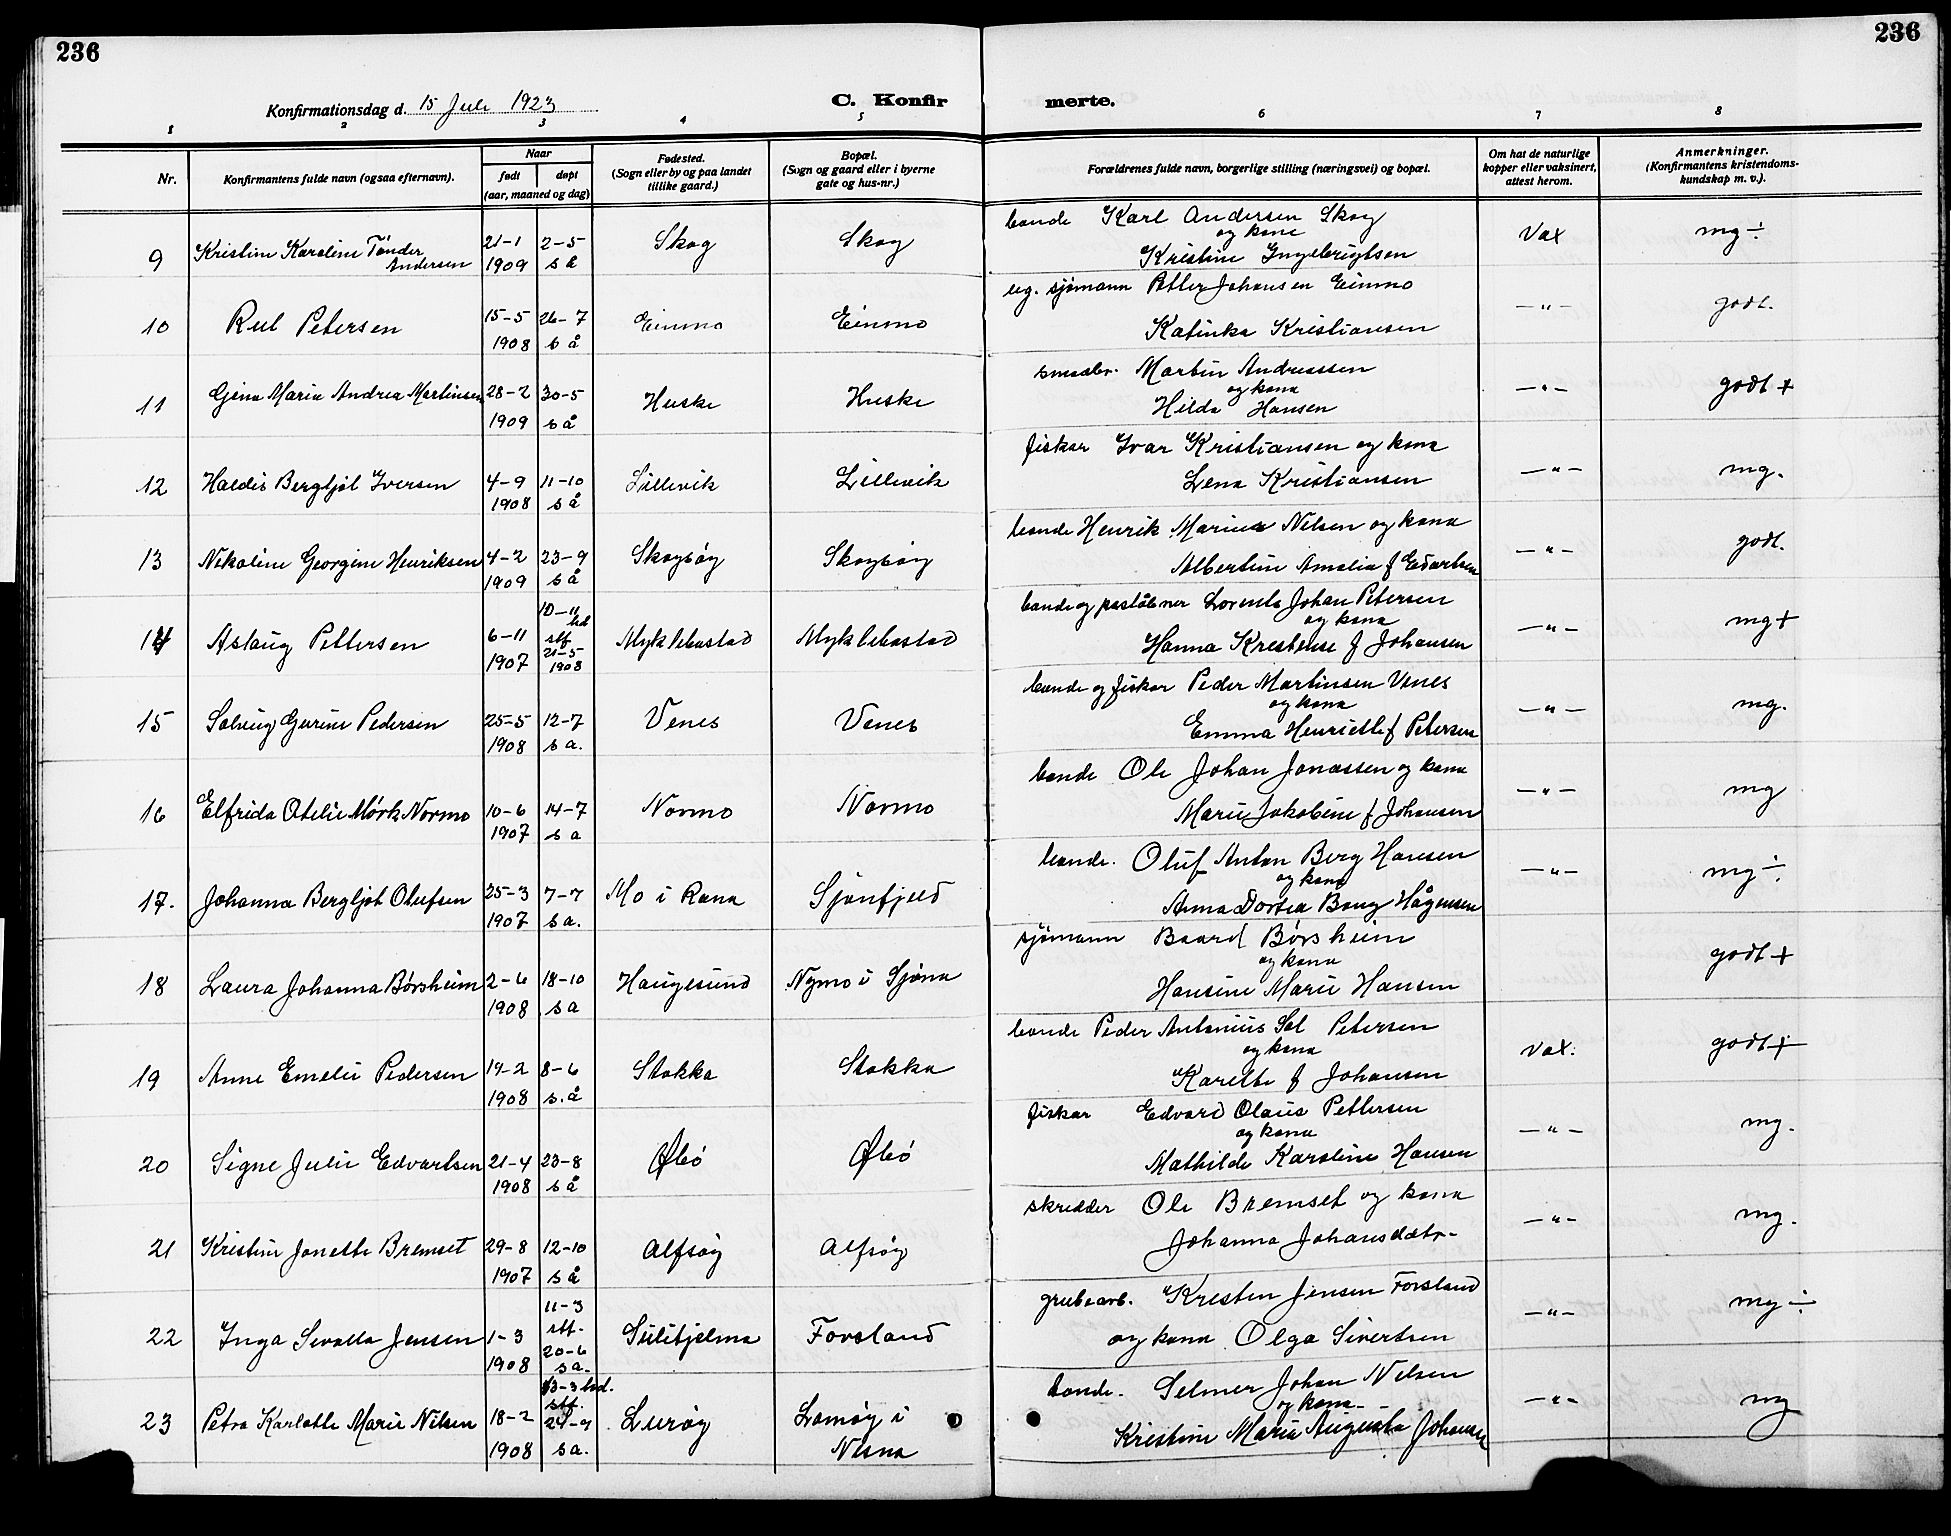 236
236
Konfirmationsdag d. 15 Juli 1923
C. Konfirmerte.
1 2 3 4 5 6 7 8
Nr.
Konfirmantens fulde navn (ogsaa efternavn).
Naar
født
døpt
(aar, maaned og dag)
Fødested.
(Sogn eller by og paa landet
tillike gaard.)
Bopæl.
(Sogn og gaard eller i byerne
gate og hus-nr.)
Forældrenes fulde navn, borgerlige stilling (næringsvei) og bopæl.
Om hat de naturlige
kopper eller vaksinert,
attest herom.
Anmerkninger.
(Konfirmantens kristendoms-
kundskap m. v.).
9 Kristine Karoline Tønder Andersen 21-1 1909 2-5 s å Skog Skog bonde Karl Andersen Skog og kone Kristine Ingebrigtsen Vax mg÷
10 Rut Petersen 15-5 1908 26-7 s å Einmo Einmo ug. sjømann Petter Johansen Einmo Katinka Kristiansen -"- godt.
11 Gjena Maria Andrea Martinsen 28-2 1909 30-5 s å Huske Huske smaabr. Martin Andreassen og kona Hilda Hansen -"- godt +
12 Haldis Bergljot Iversen 4-9 1908 11-10 s å Lillevik Lillevik fisker Ivar Kristiansen og kona Lena Kristiansen -"- mg.
13 Nikoline Georgine Henriksen 4-2 1909 23-9 s å Skogsøy Skogsøy bonde Henrik Marius Nilsen og kona Albertine Amalia f Edvartsen -"- godt.
14 Aslaug Pettersen 6-11 1907 10-11 hd stf 21-5 1908 Myklebostad Myklebostad bonde og poståbner Lorents Johan Petersen og kona Hanna Krestense f Johansen -"- mg+
15 Solveig Gurine Pedersen 25-5 1908 12-7 s a. Venes Venes bonde og fisker Peder Martinsen Venes og kona Emma Henriette f Petersen -"- mg.
16 Elfrida Otelie Mørk Normo 10-6 1907 14-7 s a Normo Normo bonde Ole Johan Jonassen og kona Marie Jakobine f Johansen -"- mg
17. Johanna Bergljot Olufsen 25-3 1907 7-7 s a. Mo i Rana Sjonfjeld bonde. Oluf Anton Berg Hansen og kone Anna Dortea Bang Hågensen -"- mg÷
18 Laura Johanna Børsheim 2-6 1908 18-10 s a Haugesund Nymo i Sjona sjømann Baard Børsheim og kona Hansine Marie Hansen godt+
19 Anne Emelie Pedersen 19-2 1908 8-6 s. å Stokka Stokka bonde Peder Antonius Sol Petersen og kona Karette f Johansen Vax. godt+
20 Signe Julie Edvartsen 21-4 1908 23-8 s å Øbø Øbø fisker Edvard Olaus Pettersen og kona Mathilde Karoline Hansen -"- mg.
21 Kristine Jonette Bremset 29-8 1907 12-10 s å Alfsøy Alfsøy skredder Ole Bremset og kona Johanna Johansdatr- -"- mg.
22 Inga Sevalla Jensen 1-3 1908 11-3 stf. 20-6 s a. Sulitjelma Forsland grubearb. Kresten Jensen Forsland og kona Olga Sivertsen -"- mg÷
23 Petra Karlotte Marie Nilsen 18-2 1908 13-3 hd. stf. 24-9 s a. Lurøy Lamøy i Nesna bonde. Selmer Johan Nilsen og kona- Kristine Marie Augusta Johansen -"- mg